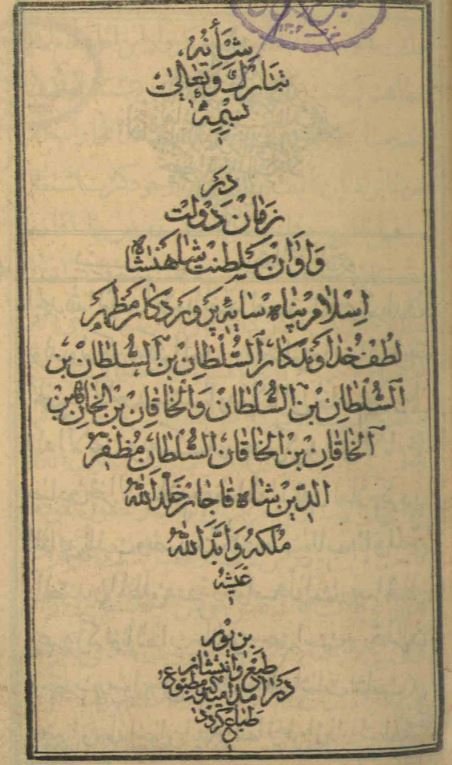 شأنه
تبارك وتعالى
بسمه
در
زمان دولت
و اوان سلطنت شاهنشاه
اسلام پناه سایه پروردگار مظهر
لطف خداوندگار السّلطان بن السّلطان بن
السّلطان بن السّلطان والخاقان بن الخاقان بن
الخاقان بن الخاقان السّلطان مظفر
الدّین شاه قاجار خلّد الله
ملکه و ابّد الله
عیشه
بزیور
طبع و انتشار
در آمد
مطبوع
طباع گردید